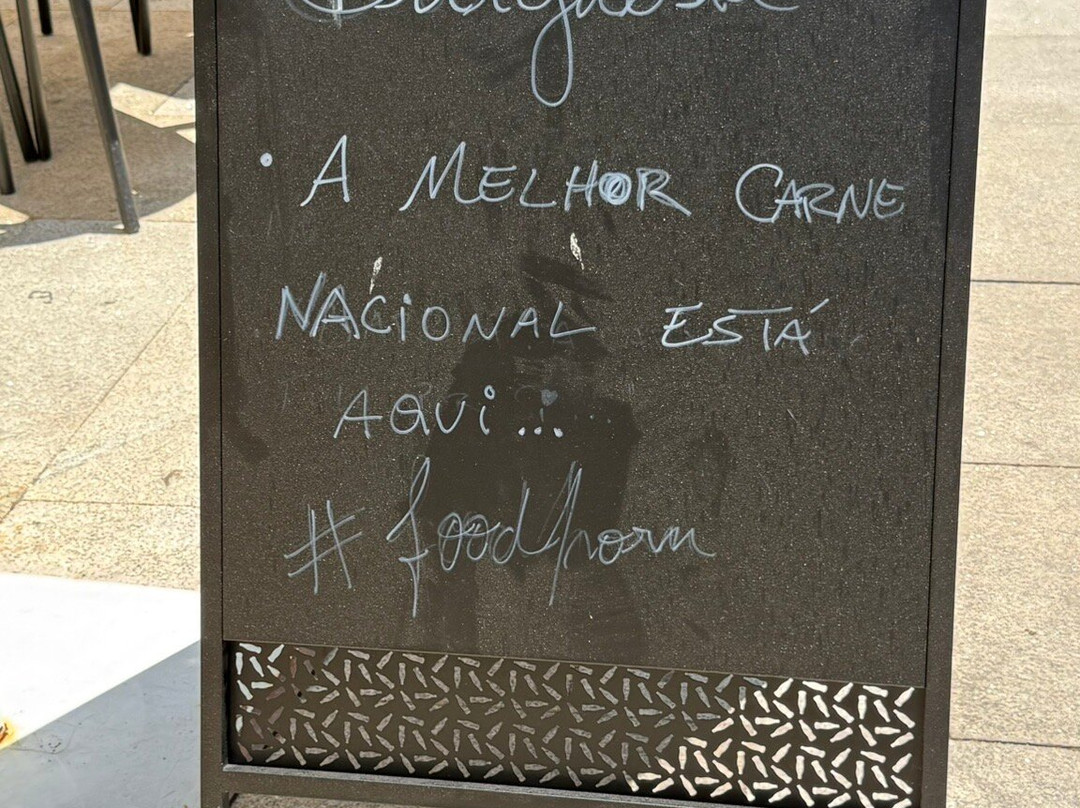 • A MELHOR CARNE
NACIONAL ESTÁ
AQUI...
#foodporn